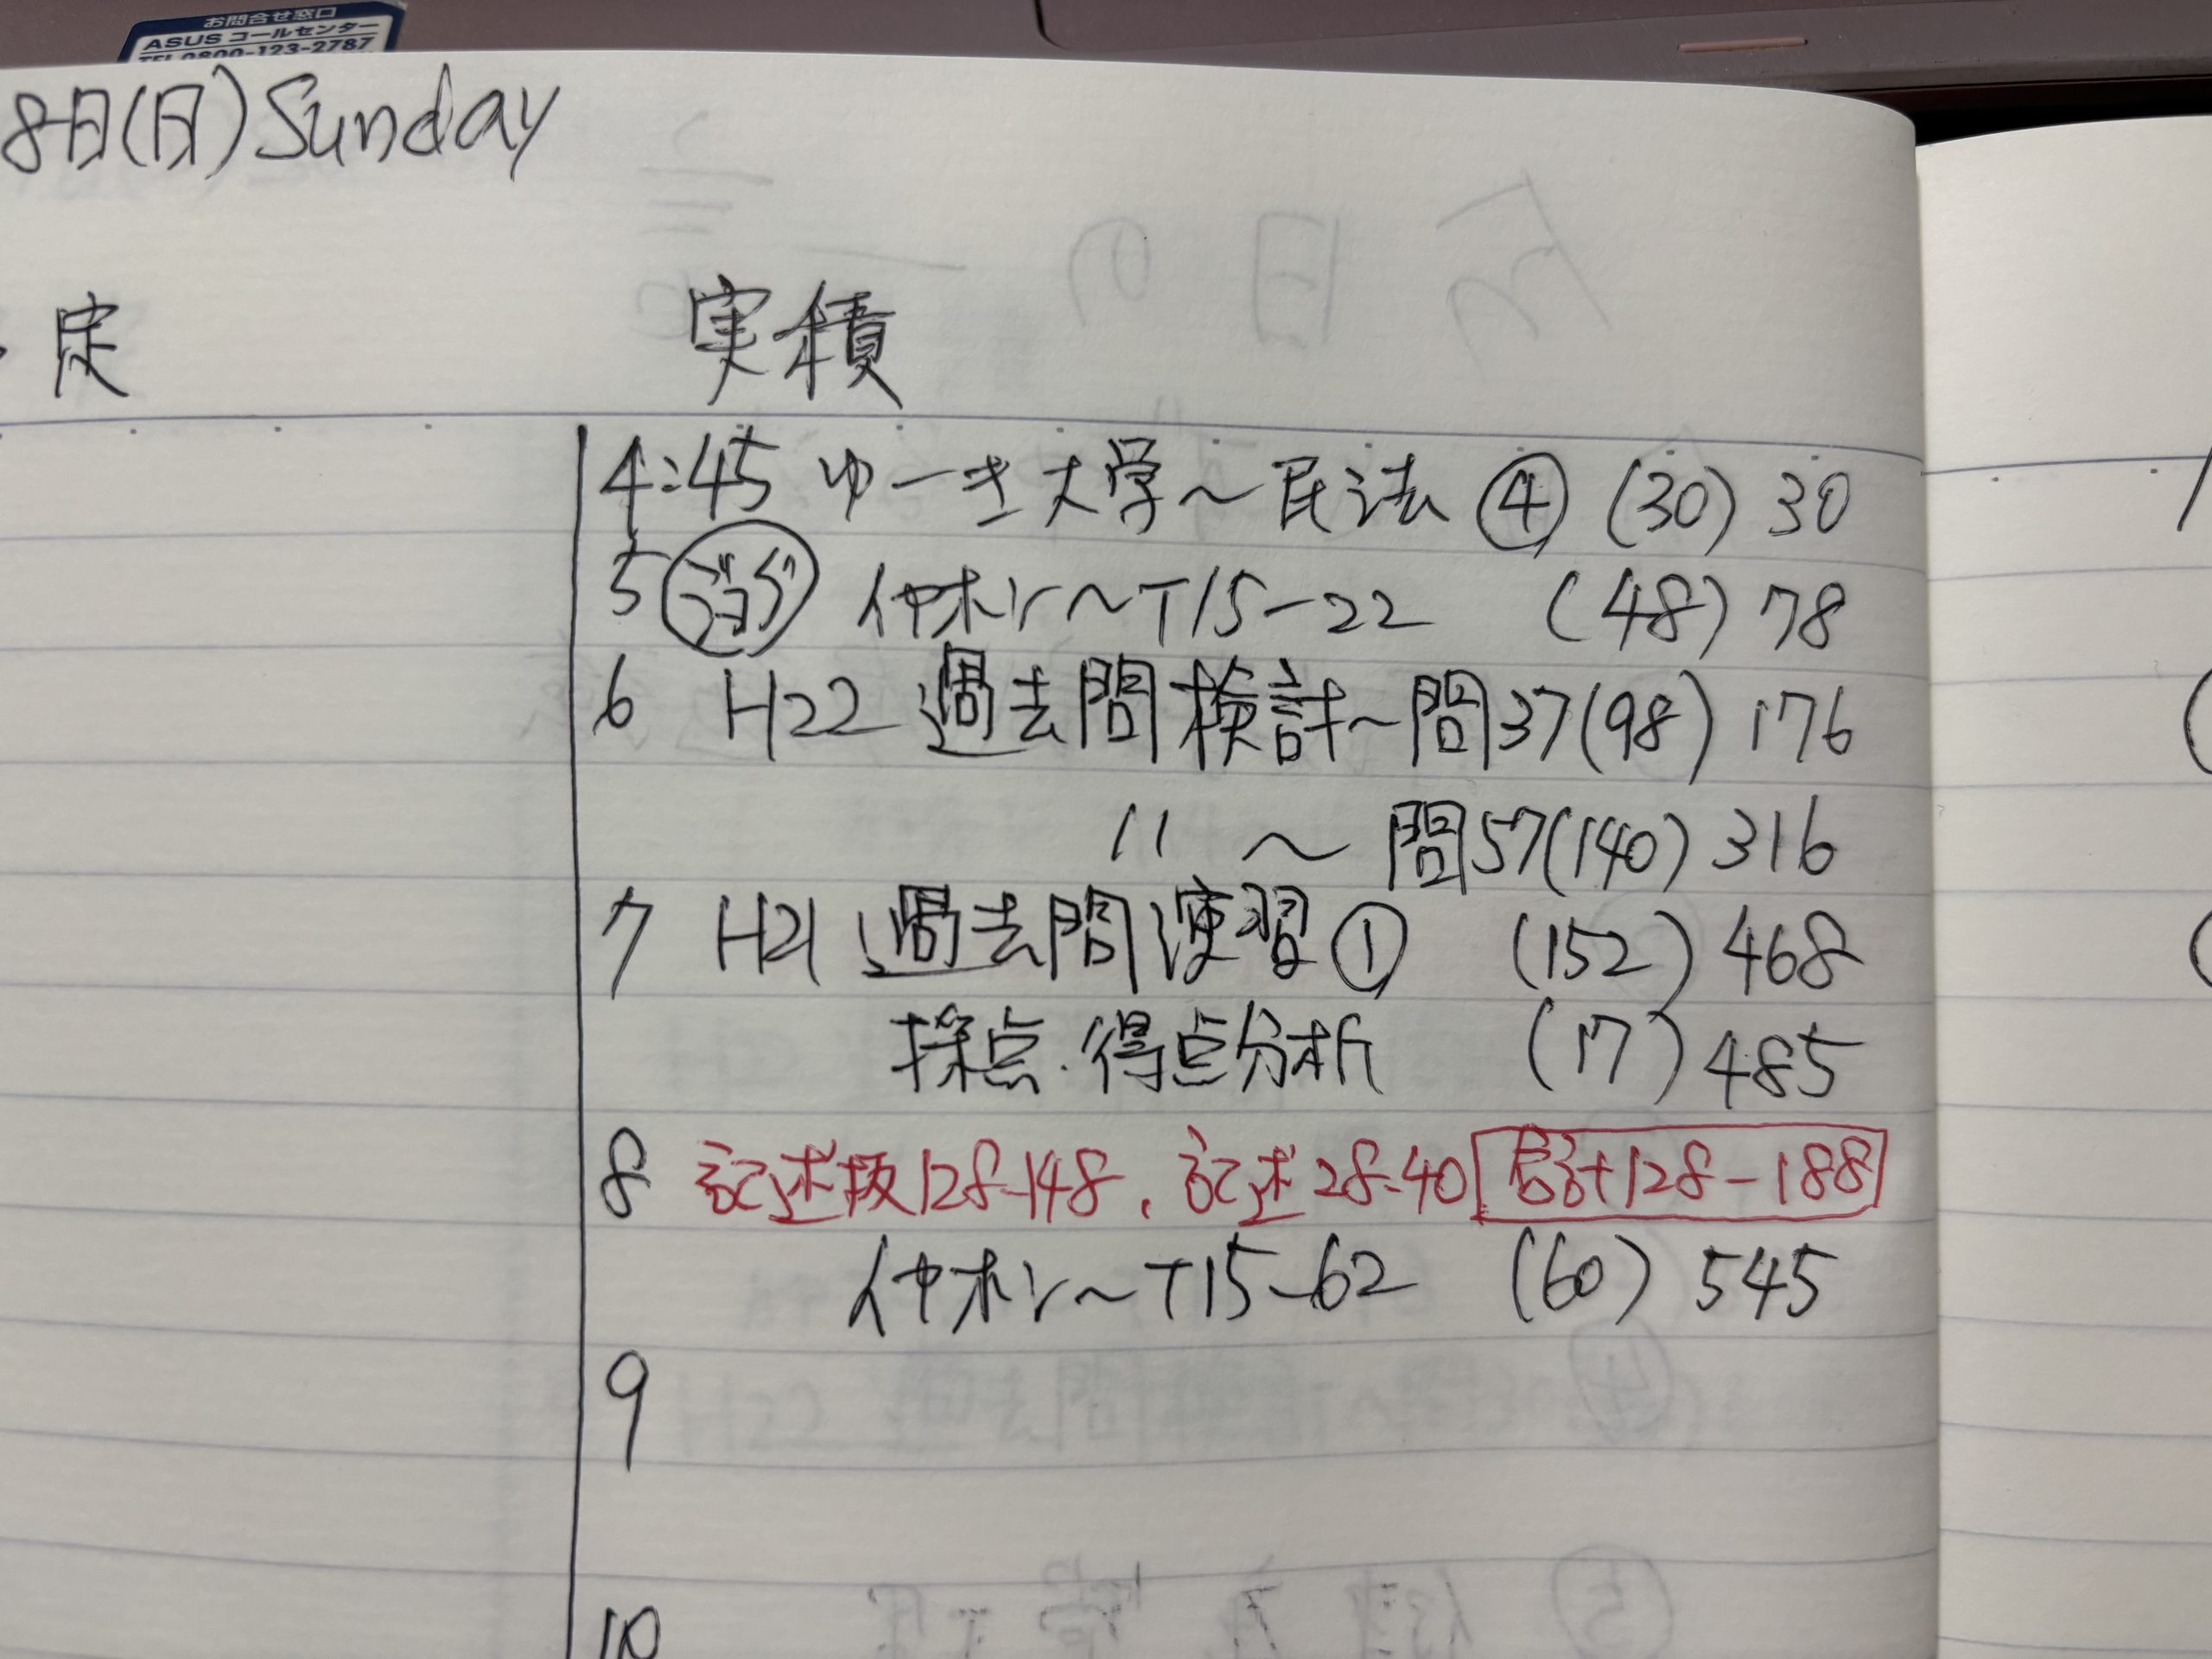 お問合せ窓口
ASUS コールセンター
TEL0800-123-2787
8日(日) Sunday
定
実積
4:45 ゆーき大学～民法 ④ (30) 30
5 ジョグ イヤホン～T15-22 (48) 78
6 H22 過去問検討～問37(98) 176
〃 ～ 問57(140) 316
7 H21 過去問演習① (152) 468
採点・得点分析 (17) 485
8 記述抜128-148、記述28-40 合計128-188
イヤホン～T15-62 (60) 545
9
10